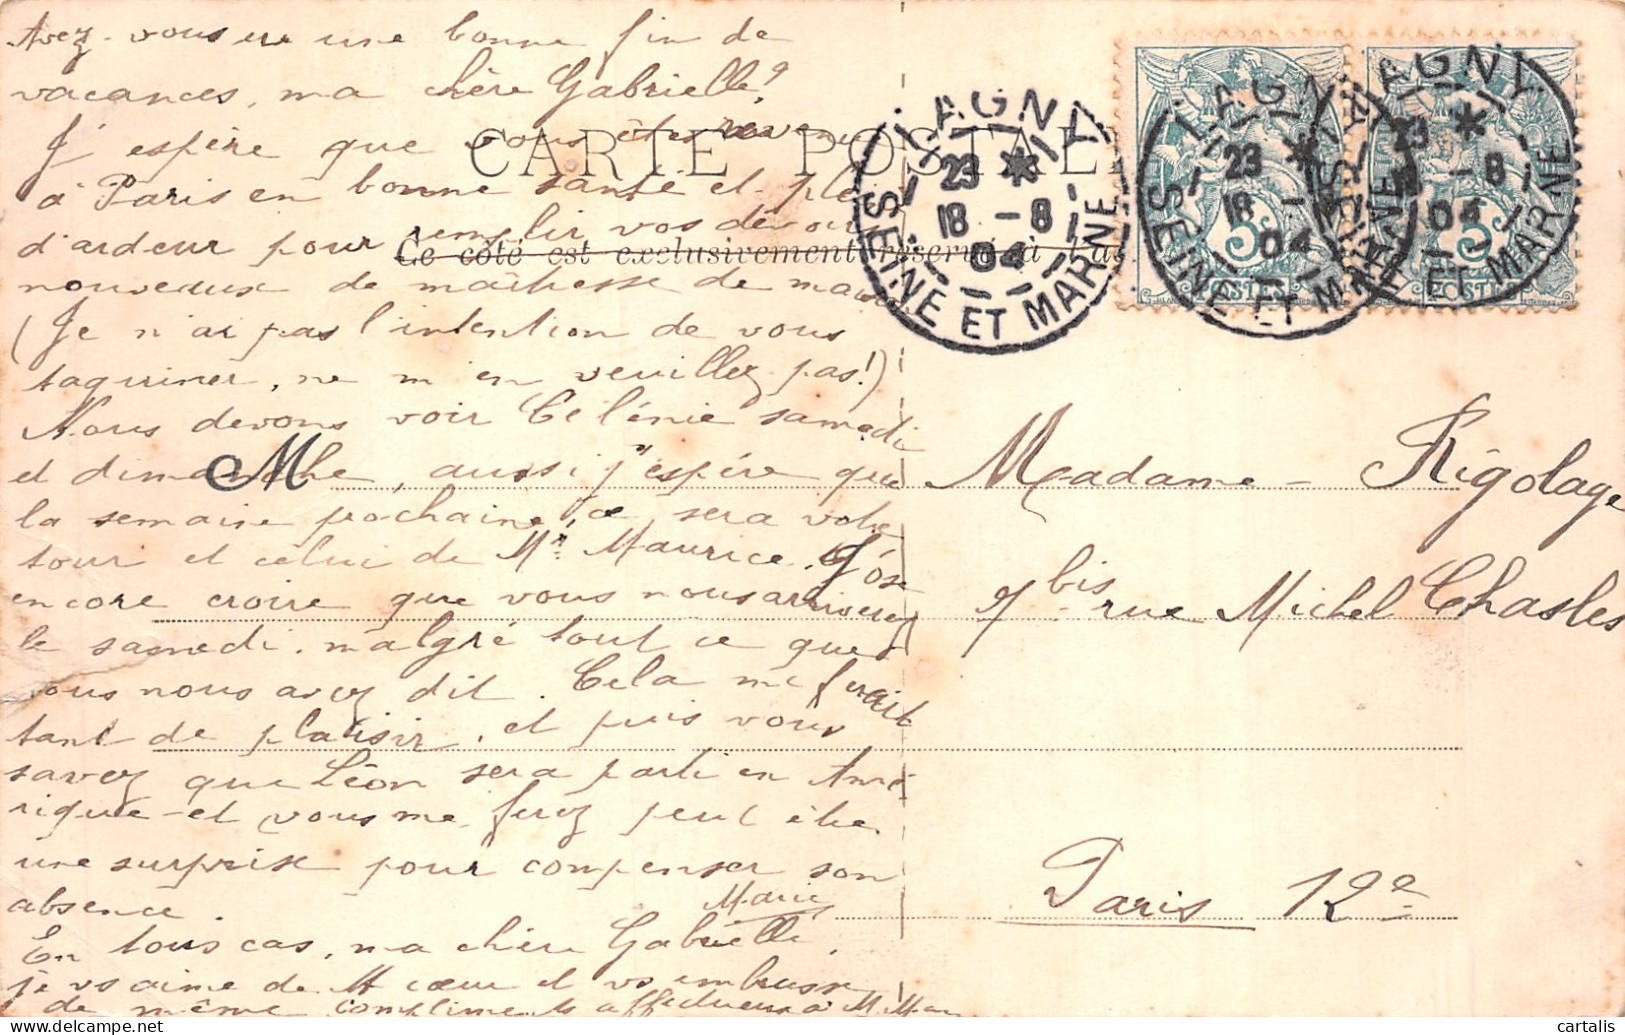 Avez-vous eu une bonne fin de
vacances, ma chère Gabrielle?
J'espère que vous êtes revenu
à Paris en bonne santé et plei
d'ardeur pour remplir vos devoir
nouveaux de maîtresse de mai
(Je n'ai pas l'intention de vous
taquiner, ne m'en veuillez pas!)
Nous devons voir Célénie samedi
et dimanche, aussi j'espère que
la semaine prochaine, ce sera votre
tour et celui de Mr Maurice. J'ose
encore croire que vous nous arriverez
le samedi, malgré tout ce que
vous nous avez dit. Cela me ferait
tant de plaisir, et puis vous
savez que Léon sera parti en Amé-
rique - et vous me ferez peut être
une surprise pour compenser son
absence.
Marie
En tous cas, ma chère Gabrielle,
je vs aime de tt cœur et vs embrasse
de même compliments affectueux à M. Mau
CARTE POSTAL
Ce côté est exclusivement réservé à l'a
M
LAGNY
23 *
18 -8
04
SEINE ET MARNE
LAGNY
23 *
18 -8
04
SEINE ET MARNE
LAGNY
23 *
18 -8
04
SEINE ET MARNE
5c
POSTES
5c
POSTES
Madame Rigolage
7 bis rue Michel Chasles
Paris 12e
cartalis
delcampe.net